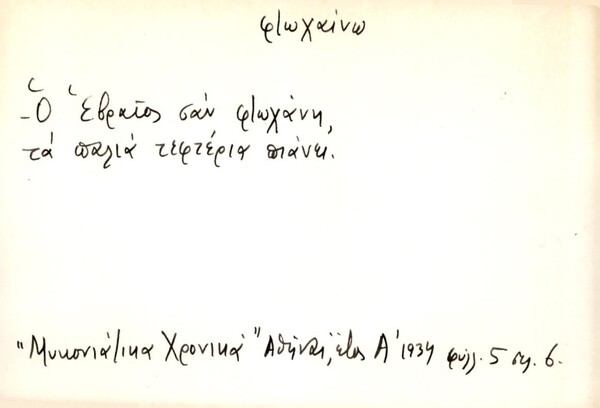 φτωχαίνω
-Ὁ Ἑβραῖος σάν φτωχάνη,
τά παλιά τεφτέρια πιάνει.
"Μυκονιάτικα Χρονικά" Ἀθῆναι, ἔτος Α' 1934 φύλλ. 5 σελ. 6.